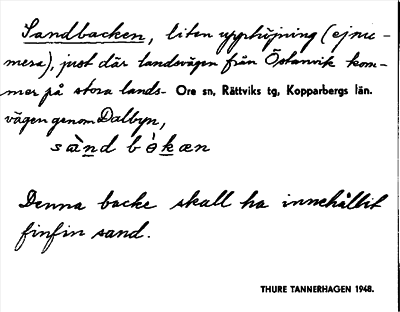 Sandbacken, liten upphöjning (ej nu-
mera), just där landsvägen från Östanvik kom-
mer på stora lands- Ore sn, Rättviks tg, Kopparbergs län.
vägen genom Dalbyn,
sànd bòkæn
Denna backe skall ha innehållit
finfin sand.
THURE TANNERHAGEN 1948.